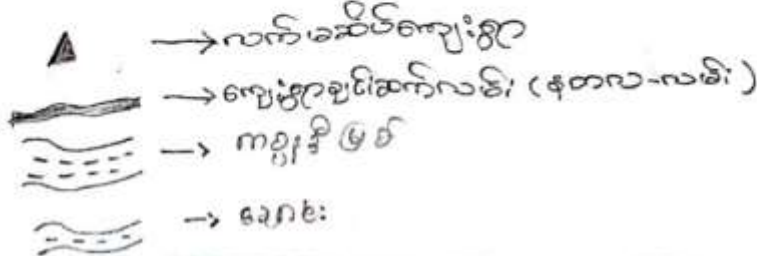 →လက်မဆိပ်ကျေးရွာ
→ကျေးရွာချင်းဆက်လမ်း (နတလ-လမ်း)
→ ကစ္ဆပနဒီမြစ်
→ ချောင်း